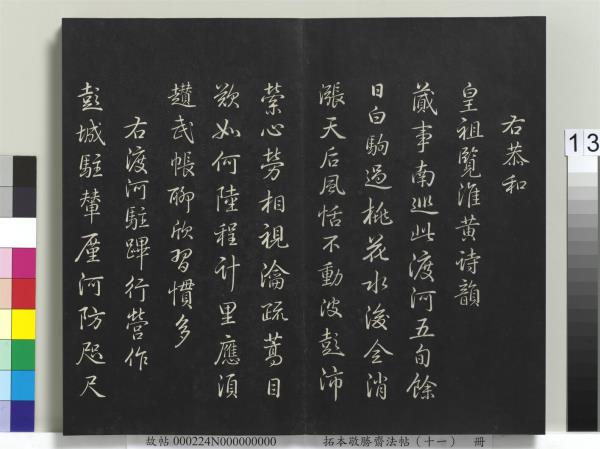 右恭和
皇祖覽淮黃詩韻
蕆事南巡此渡河五旬餘
日白駒過桃花水後今消
漲天后風恬不動波彭沛
縈心勞相視瀹疏蒿目
歎如何陸程計里應須
趲武帳聊欣習慣多
右渡河駐蹕行營作
彭城駐輦厪河防咫尺
13
故帖 000224N000000000 拓本敬勝齋法帖（十一） 冊